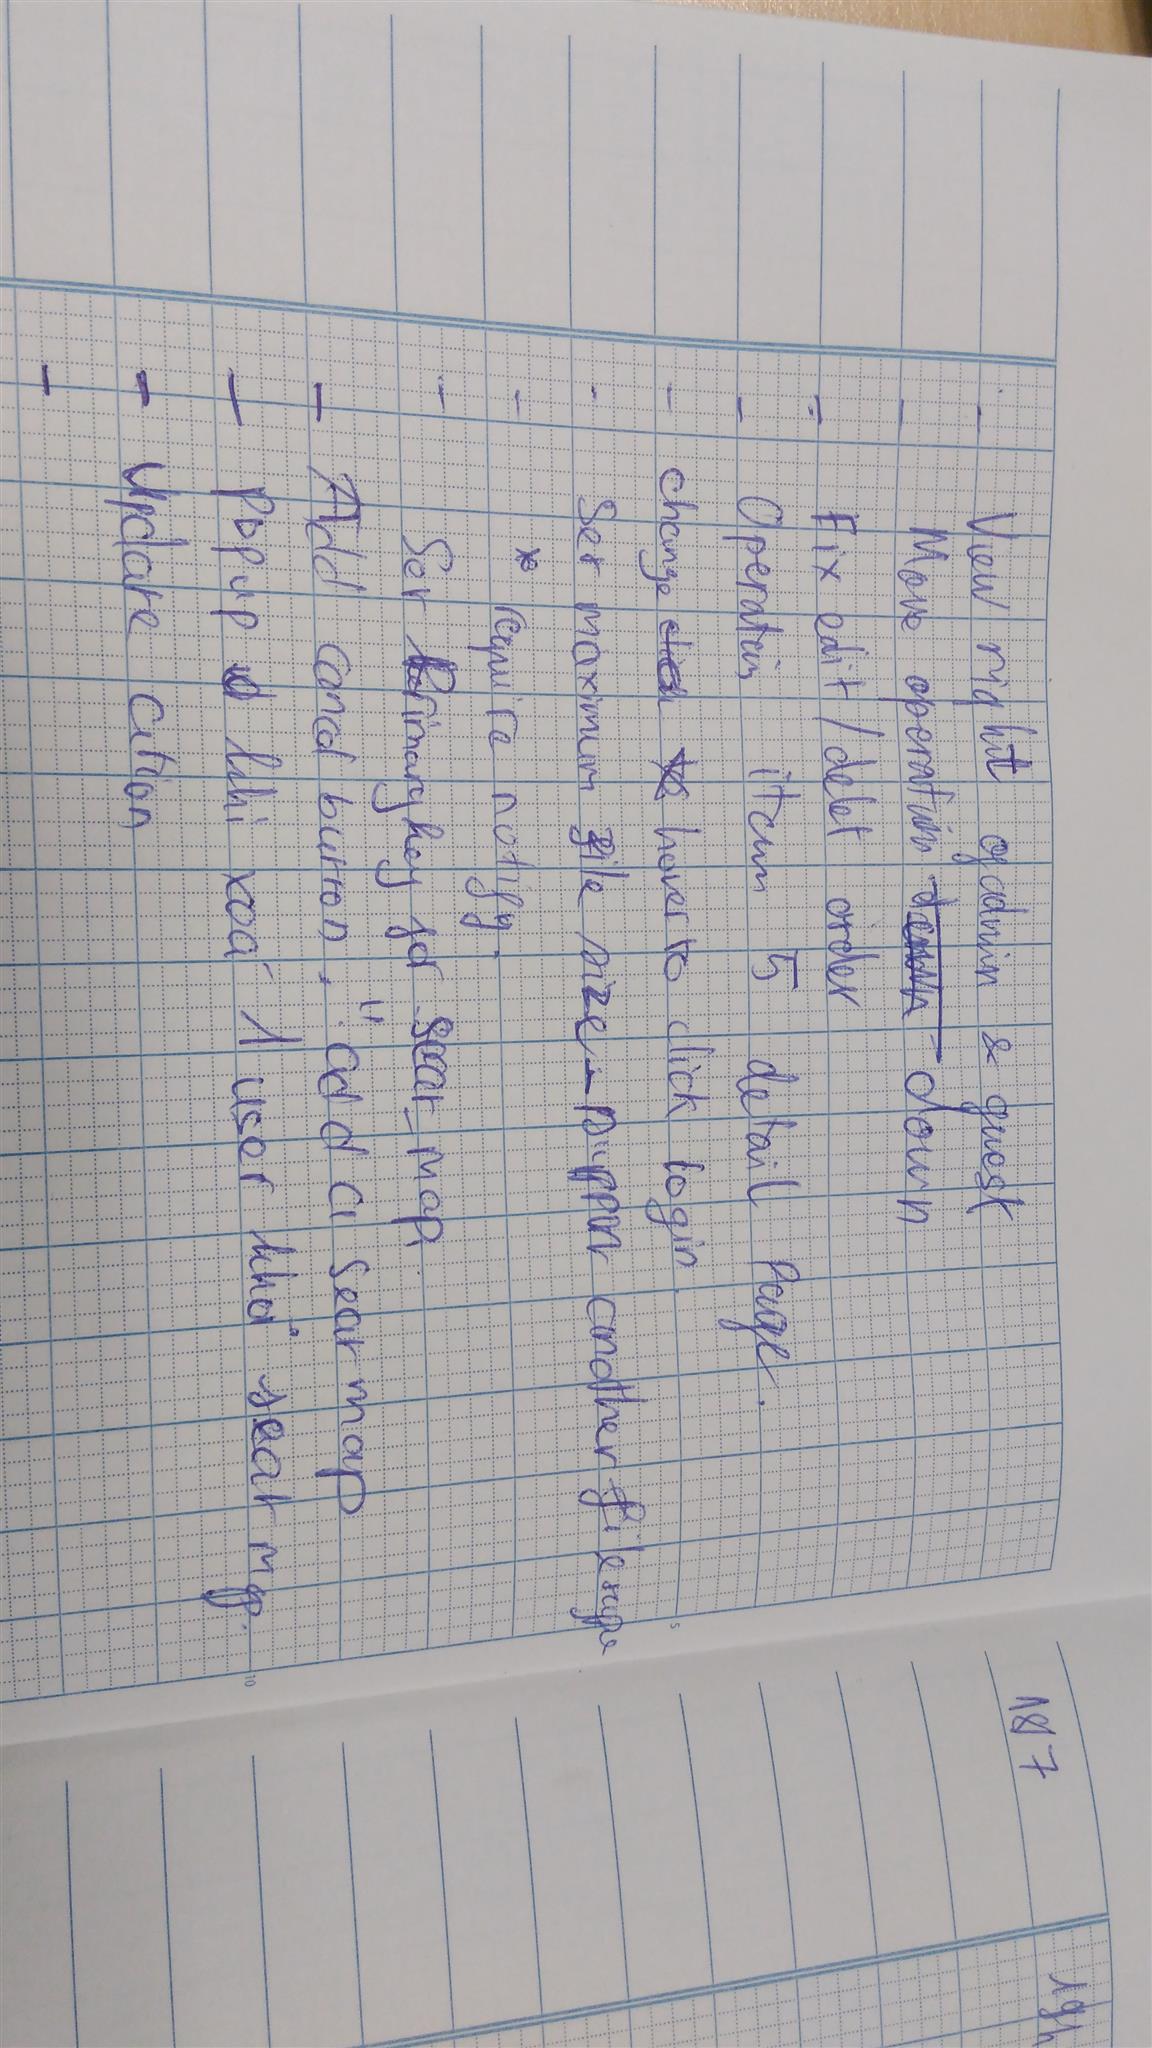 - View right of admin & guest
- Move operation down
- Fix edit/delet order
- Operatain item 5 detail Page.
- change hover to click login
- Set maximum file size - support another file type
- * require notify.
- Set Primary key for seat_map.
- Add cancel button. "add a seat map
- Popup khi xoá 1 user khỏi seat map.
- Update action
-
18/7